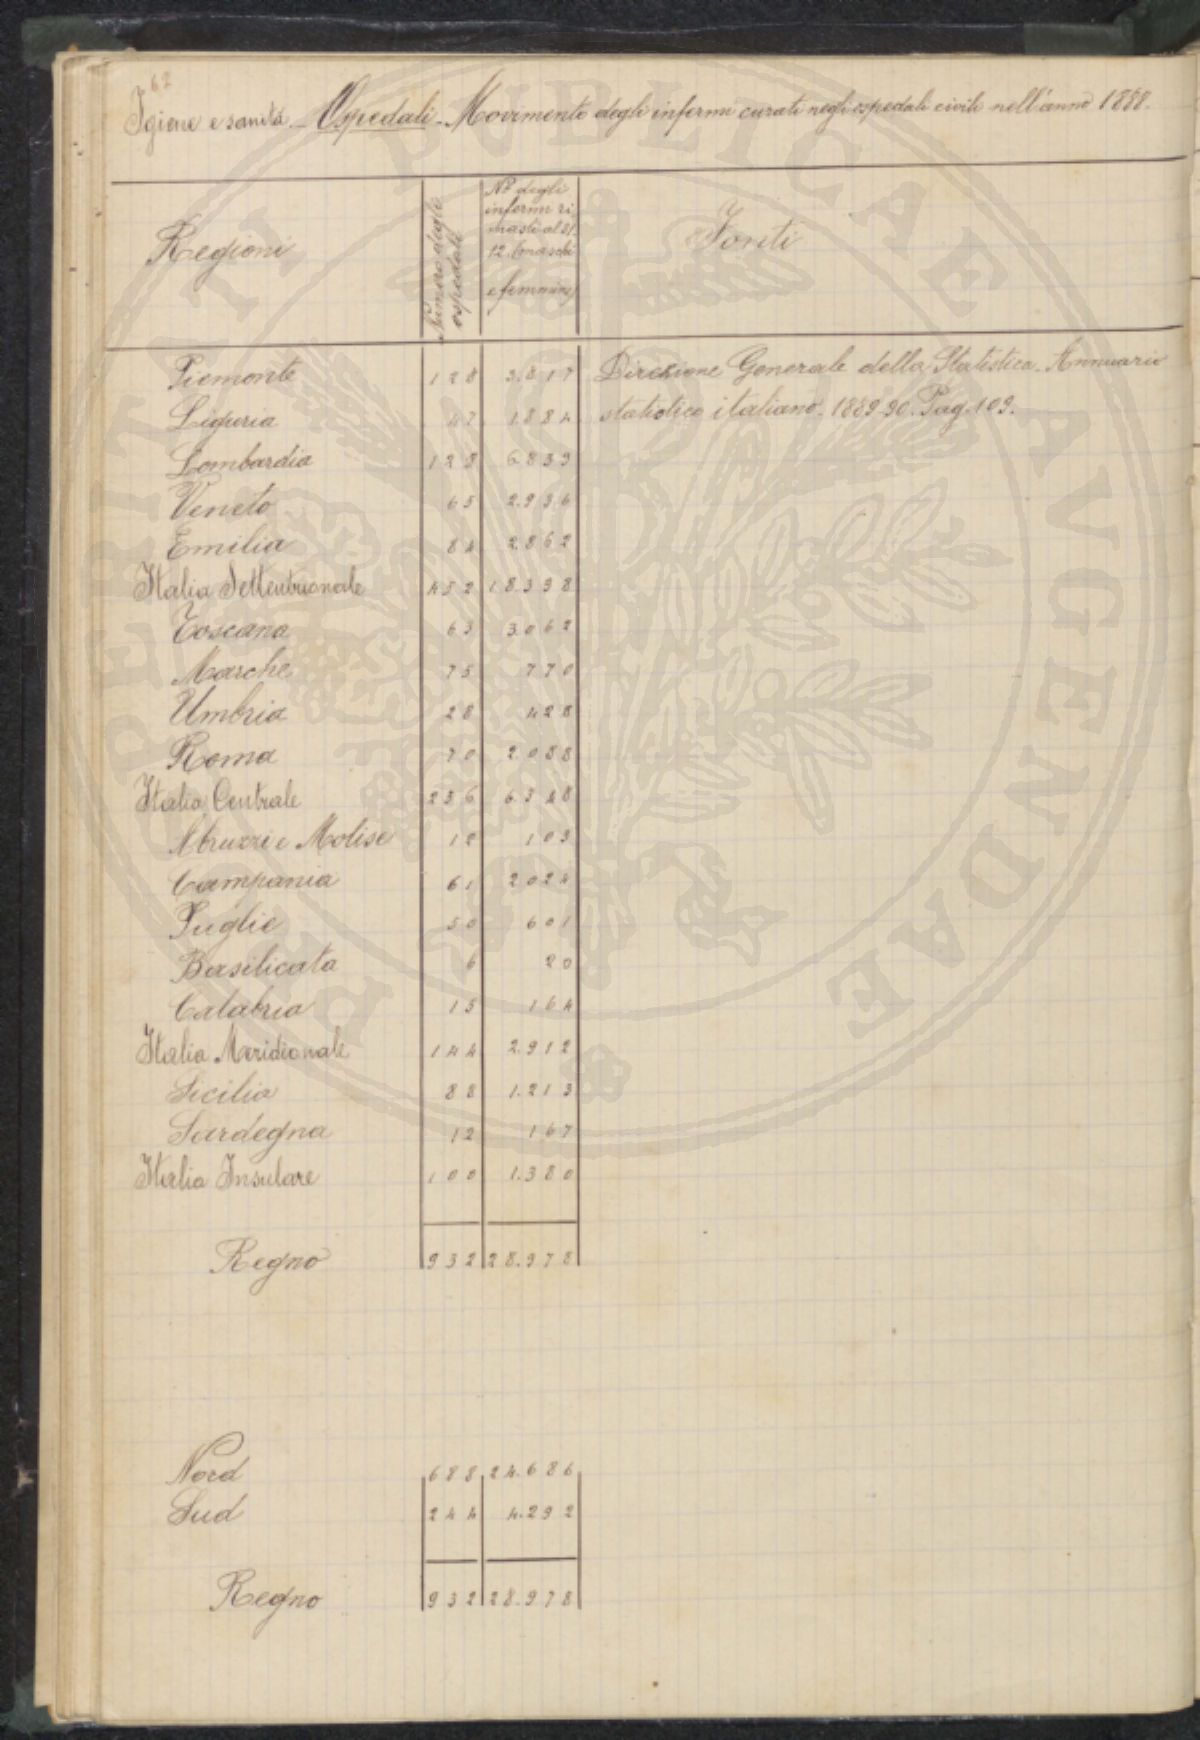 62
Igiene e sanità - Ospedali - Movimento degli infermi curati negli ospedali civili nell'anno 1888.
Regioni
Numero degli
ospedali
N° degli
infermi ri
masti al 31
12. (maschi
e femmine)
Fonti
Piemonte 128 3.817 Direzione Generale della Statistica. Annuario
Liguria 47 1.884 statistico italiano. 1889-90. Pag. 109.
Lombardia 128 6.839
Veneto 65 2.936
Emilia 84 2.862
Italia Settentrionale 452 18.338
Toscana 63 3.062
Marche 75 770
Umbria 28 428
Roma 70 2.088
Italia Centrale 236 6.348
Abruzzi e Molise 12 103
Campania 61 2.024
Puglie 50 601
Basilicata 6 20
Calabria 15 164
Italia Meridionale 144 2.912
Sicilia 88 1.213
Sardegna 12 167
Italia Insulare 100 1.380
Regno 932 28.978
Nord 688 24.686
Sud 244 4.292
Regno 932 28.978
PROSPERITATI PUBLICAE AVGENDAE